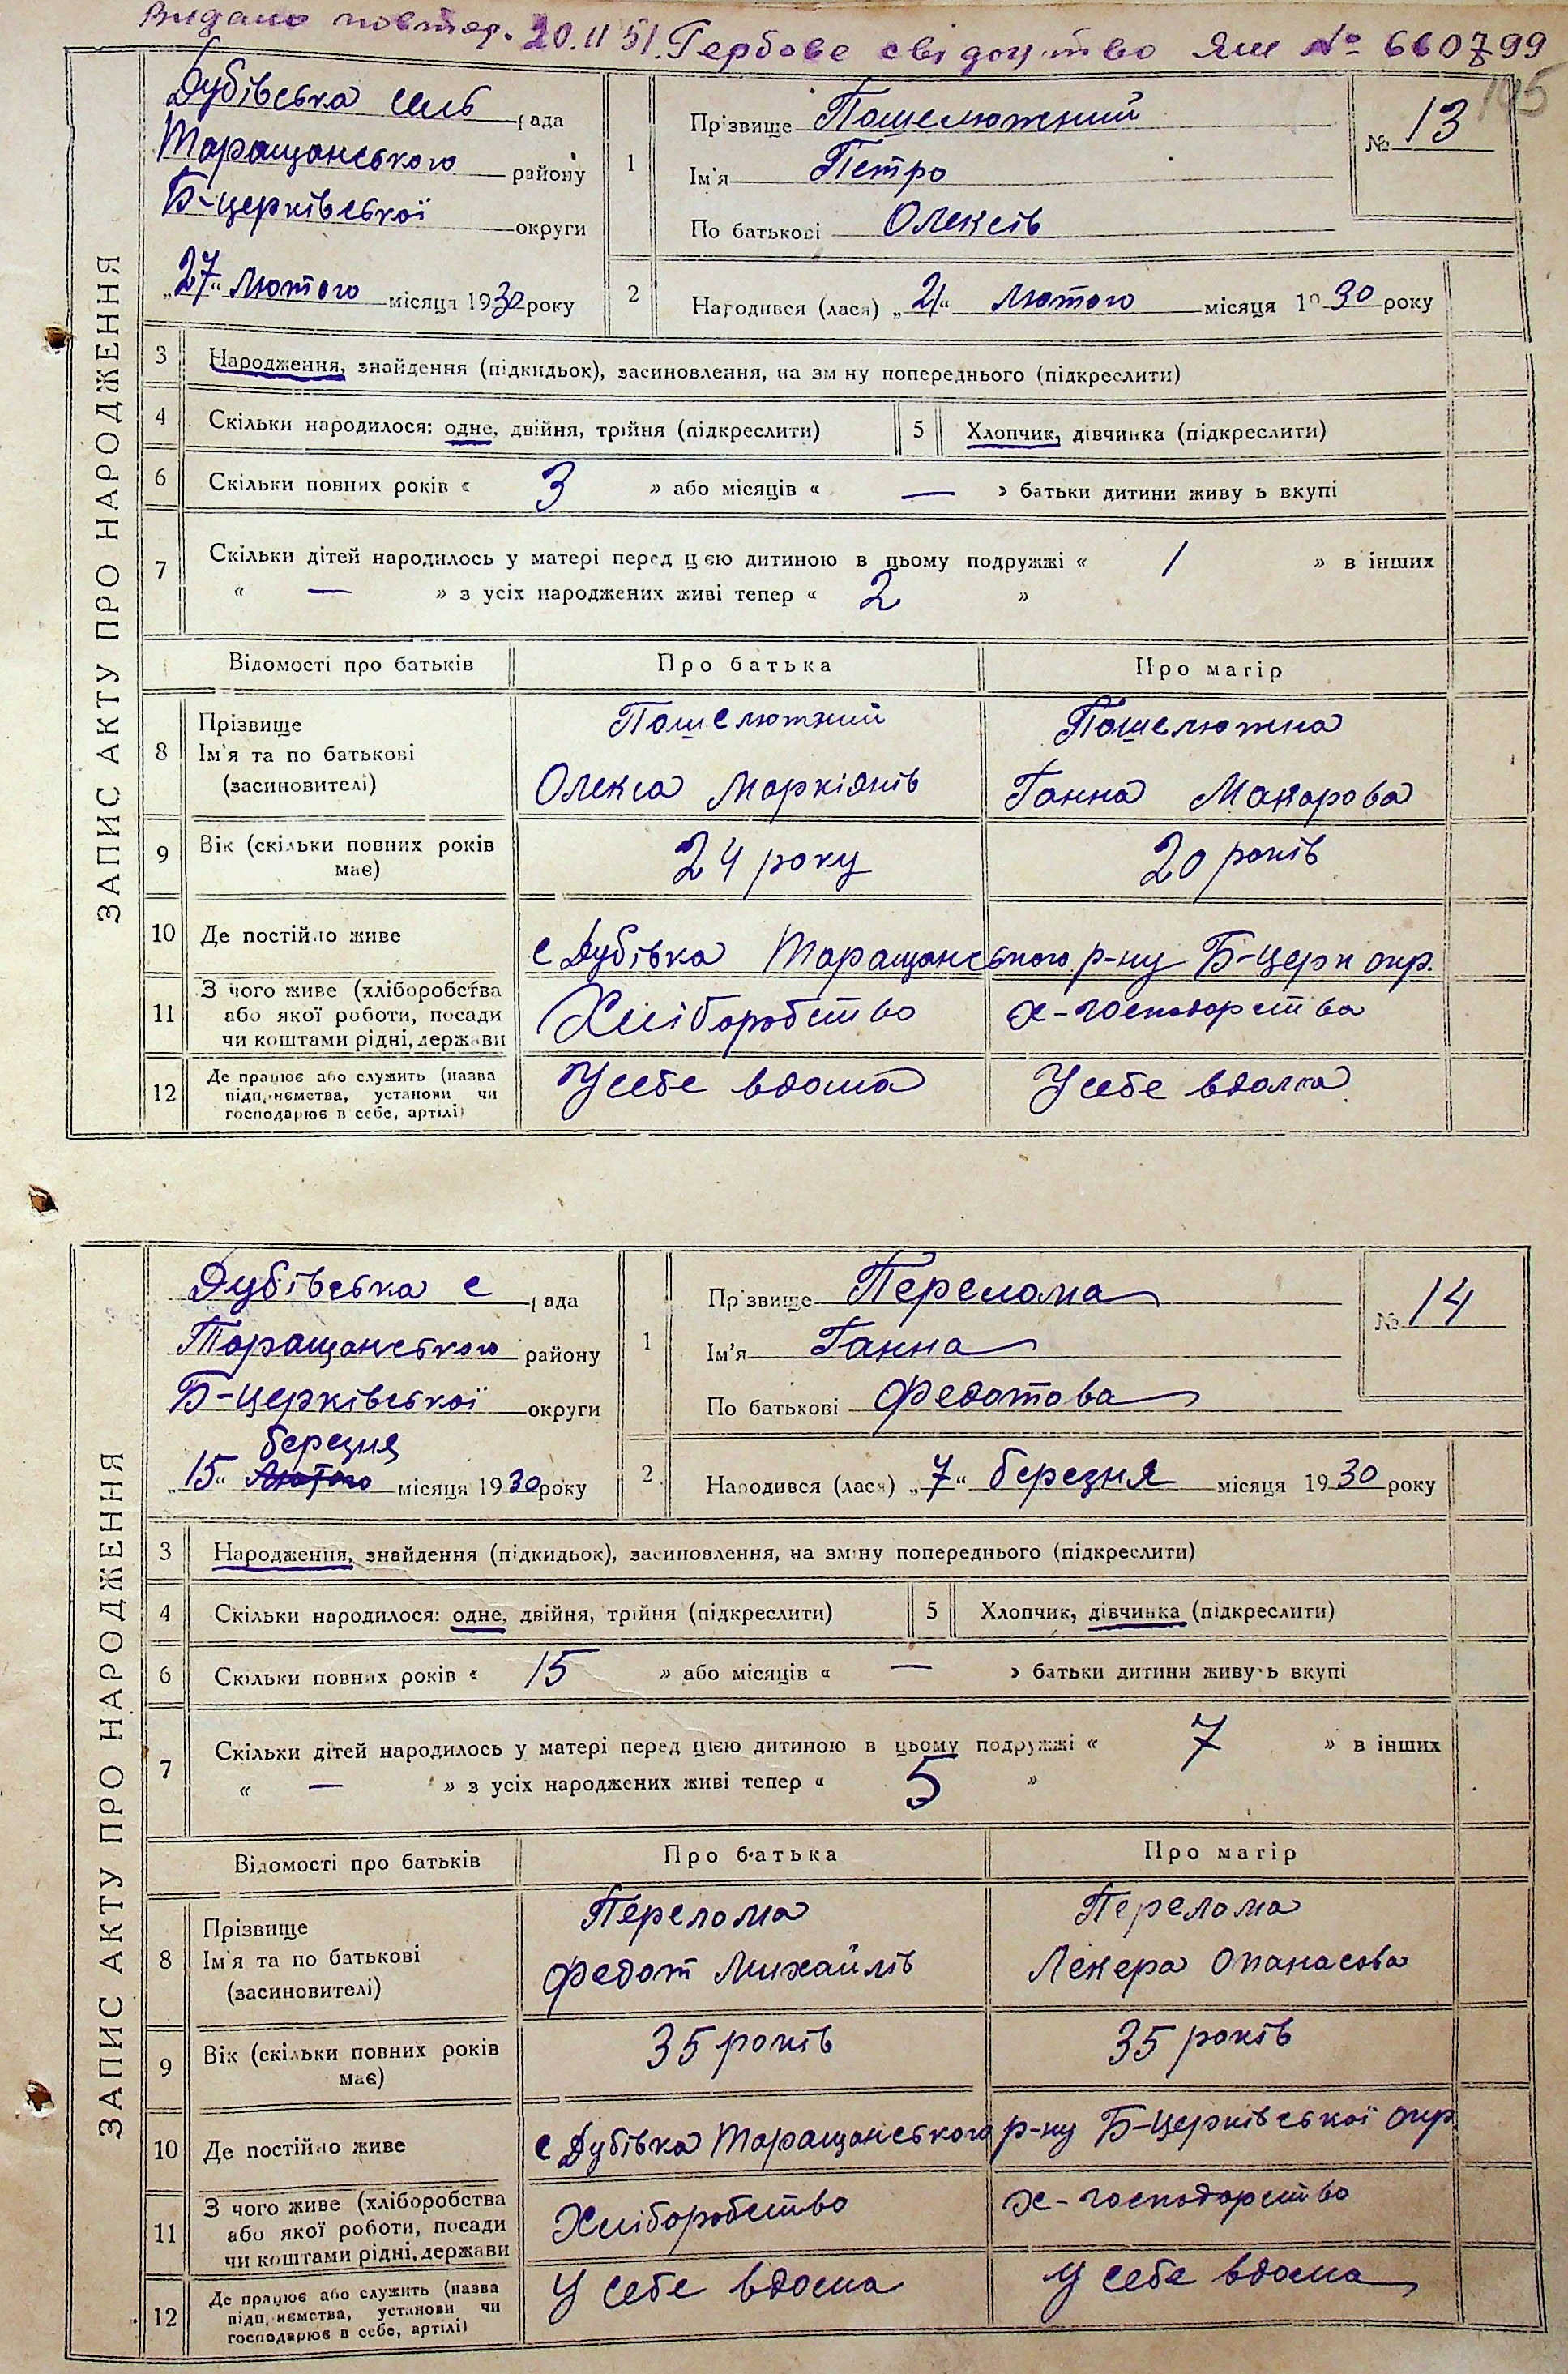 Видано повтор. 20.II 51. Гербове свідоцтво ЯШ № 660799
ЗАПИС АКТУ ПРО НАРОДЖЕННЯ
Дубівська сель рада
Таращанського району
Б-церківської округи
„27“ Лютого місяця 1930 року
1
Прізвище Пошелюжний
Ім'я Петро
По батькові Олексів
№ 13
2
Народився (лася) „21“ Лютого місяця 1930 року
3 Народження, знайдення (підкидьок), засиновлення, на зміну попереднього (підкреслити)
4 Скільки народилося: одне, двійня, трійня (підкреслити) 5 Хлопчик, дівчинка (підкреслити)
6 Скільки повних років « 3 » або місяців « — » батьки дитини живуть вкупі
7 Скільки дітей народилось у матері перед цією дитиною в цьому подружжі « 1 » в інших
« — » з усіх народжених живі тепер « 2 »
Відомості про батьків Про батька Про матір
8 Прізвище Ім'я та по батькові (засиновителі)
Пошелюжний Пошелюжна
Олекса Маркіянів Ганна Макарова
9 Вік (скільки повних років має) 24 року 20 років
10 Де постійно живе с Дубівка Таращанського р-ну Б-Церк окр.
11 З чого живе (хліборобства або якої роботи, посади чи коштами рідні, держави
Хліборобство х-господарства
12 Де працює або служить (назва підприємства, установи чи господарює в себе, артілі)
У себе вдома У себе вдома
ЗАПИС АКТУ ПРО НАРОДЖЕННЯ
Дубівська с рада
Таращанського району
Б-церківської округи
березня
„15“ Лютого місяця 1930 року
1
Прізвище Перелома
Ім'я Ганна
По батькові Федотова
№ 14
2
Народився (лася) „7“ березня місяця 1930 року
3 Народження, знайдення (підкидьок), засиновлення, на зміну попереднього (підкреслити)
4 Скільки народилося: одне, двійня, трійня (підкреслити) 5 Хлопчик, дівчинка (підкреслити)
6 Скільки повних років « 15 » або місяців « — » батьки дитини живуть вкупі
7 Скільки дітей народилось у матері перед цією дитиною в цьому подружжі « 7 » в інших
« — » з усіх народжених живі тепер « 5 »
Відомості про батьків Про батька Про матір
8 Прізвище Ім'я та по батькові (засиновителі)
Перелома Перелома
Федот Михайлів Лекера Опанасова
9 Вік (скільки повних років має) 35 років 35 років
10 Де постійно живе с Дубівка Таращанського р-ну Б-Церківської окр
11 З чого живе (хліборобства або якої роботи, посади чи коштами рідні, держави
Хліборобство х-господарство
12 Де працює або служить (назва підприємства, установи чи господарює в себе, артілі)
У себе вдома У себе вдома